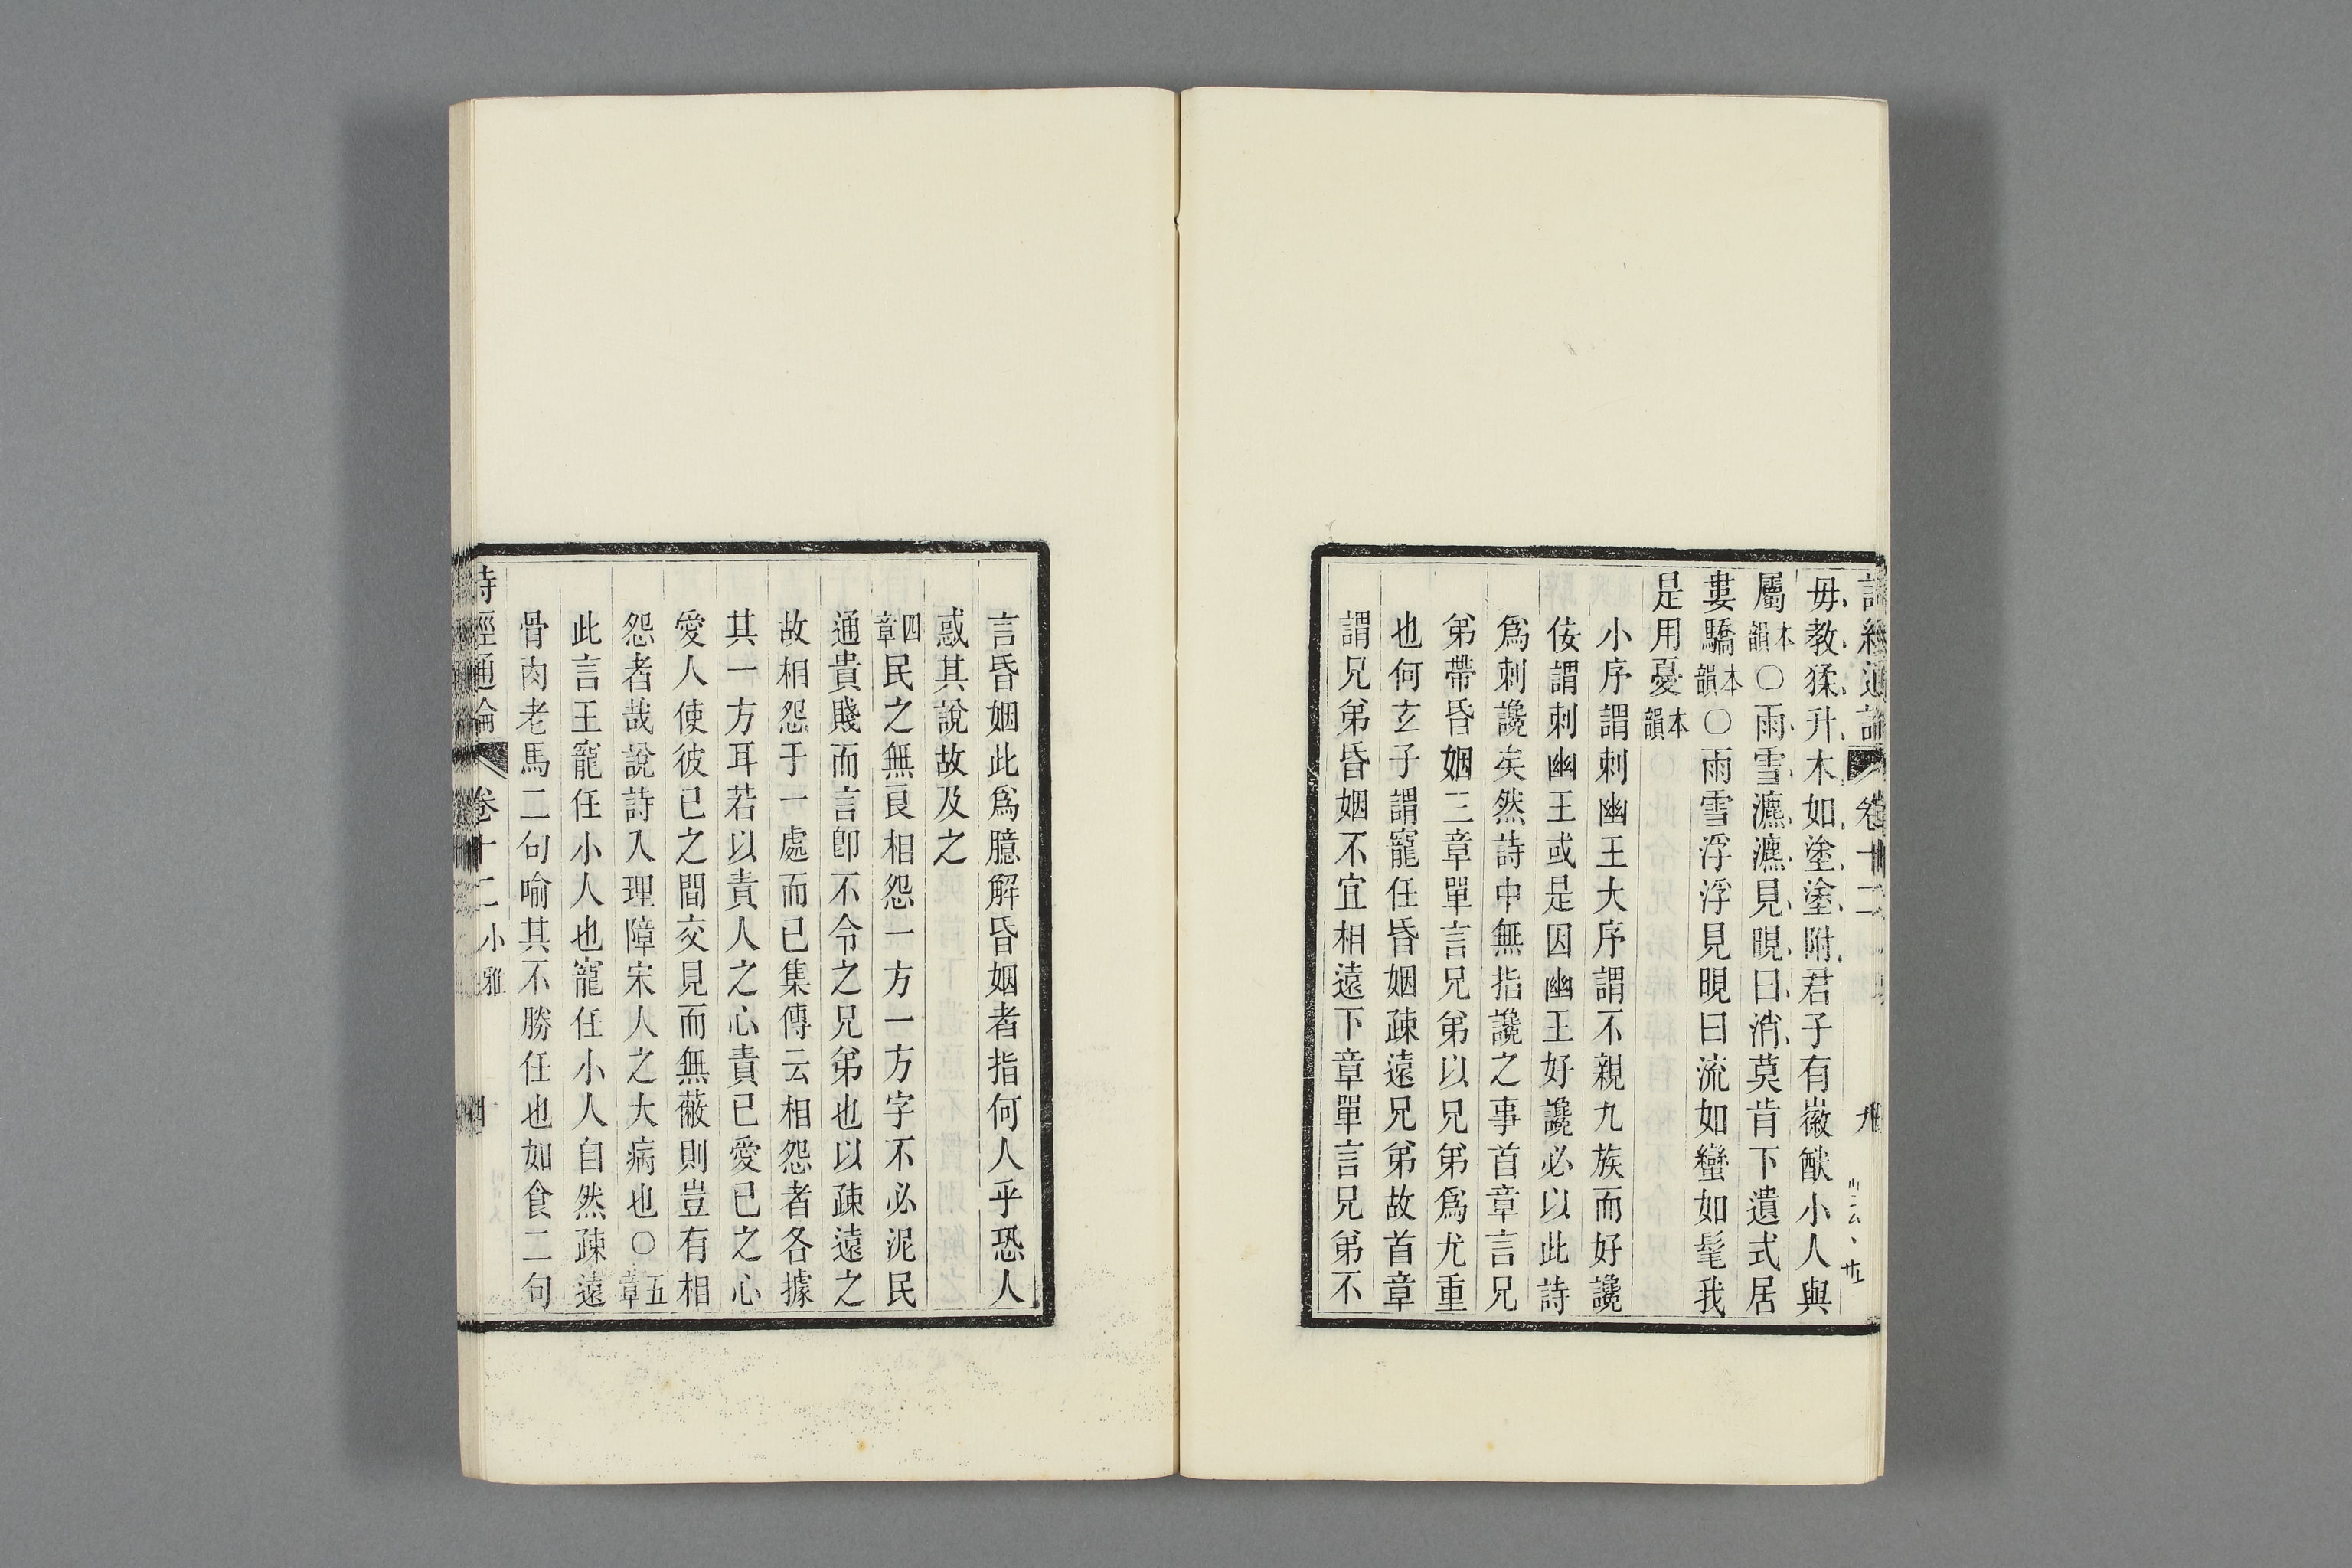 詩經通論 卷十二 九
毋教猱升木如塗塗附君子有徽猷小人與
屬本韻○雨雪瀌瀌見晛曰消莫肯下遺式居
婁驕本韻○雨雪浮浮見晛曰流如蠻如髦我
是用憂本韻
小序謂刺幽王大序謂不親九族而好讒
佞謂刺幽王或是因幽王好讒必以此詩
爲刺讒矣然詩中無指讒之事首章言兄
弟帶昏姻三章單言兄弟以兄弟爲尤重
也何玄子謂寵任昏姻疎遠兄弟故首章
謂兄弟昏姻不宜相遠下章單言兄弟不
言昏姻此爲臆解昏姻者指何人乎恐人
惑其說故及之
四章民之無良相怨一方一方字不必泥民
通貴賤而言卽不令之兄弟也以疎遠之
故相怨于一處而已集傳云相怨者各據
其一方耳若以責人之心責已愛已之心
愛人使彼已之間交見而無蔽則豈有相
怨者哉說詩入理障宋人之大病也○五章
此言王寵任小人也寵任小人自然疎遠
骨肉老馬二句喻其不勝任也如食二句
詩經通論 卷十二 小雅